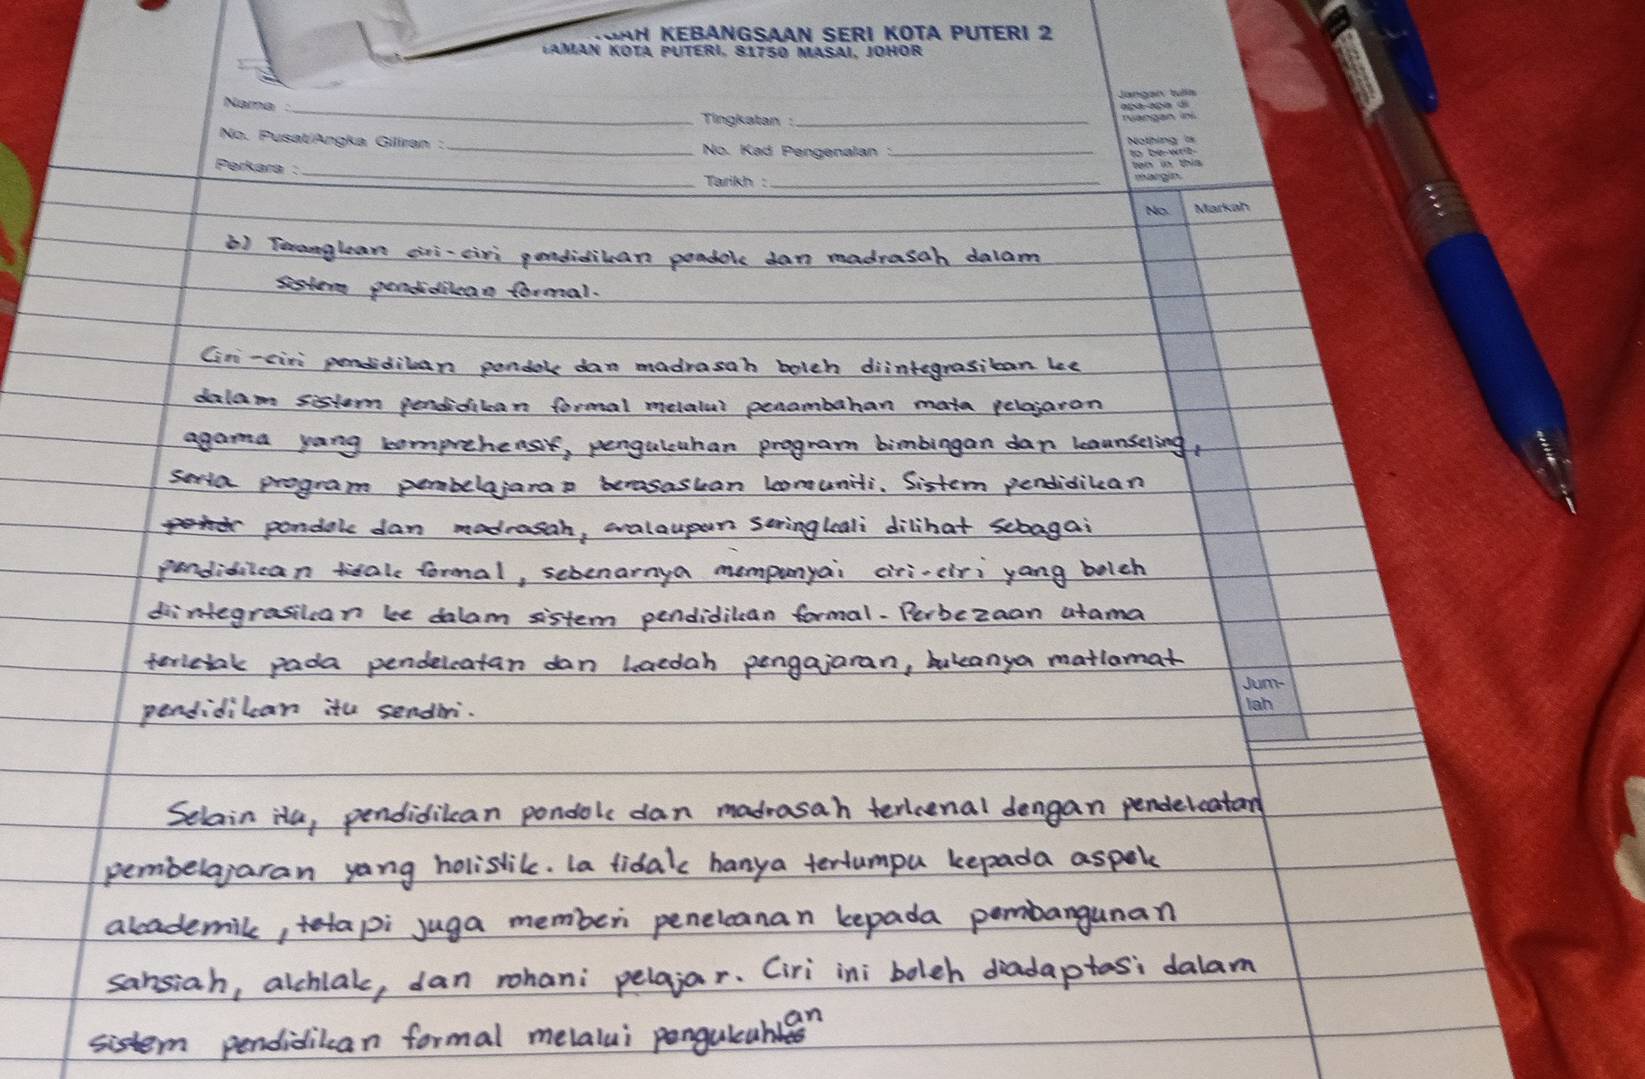 KEBANGSAAN SERI KOTA PUTERI 2
TAMAN KOTA PUTERI, 81750 MASAI, JOHOR
Nama :
Tingkatan :
Jangan tulis
apa-apa di
ruangan ini.
No. Pusat/Angka Giliran :
No. Kad Pengenalan :
Nothing is
to be writ-
ten in this
margin.
Perkara :
Tarikh :
No. Markah
b) Terangkan ciri-ciri pendidikan pondok dan madrasah dalam
sistem pendidikan formal.
Ciri-ciri pendidikan pondok dan madrasah boleh diintegrasikan ke
dalam sistem pendidikan formal melalui penambahan mata pelajaran
agama yang komprehensif, pengukuhan program bimbingan dan kaunseling,
serta program pembelajaran berasaskan komuniti. Sistem pendidikan
pondok dan madrasah, walaupun seringkali dilihat sebagai
pendidikan tidak formal, sebenarnya mempunyai ciri-ciri yang boleh
diintegrasikan ke dalam sistem pendidikan formal. Perbezaan utama
terletak pada pendekatan dan kaedah pengajaran, bukanya matlamat
pendidikan itu sendiri.
Jum-
lah
Selain itu, pendidikan pondok dan madrasah terkenal dengan pendekatan
pembelajaran yang holistik. Ia tidak hanya tertumpu kepada aspek
akademik, tetapi juga memberi penekanan kepada pembangunan
sahsiah, akhlak, dan rohani pelajar. Ciri ini boleh diadaptasi dalam
sistem pendidikan formal melalui pengukuhan